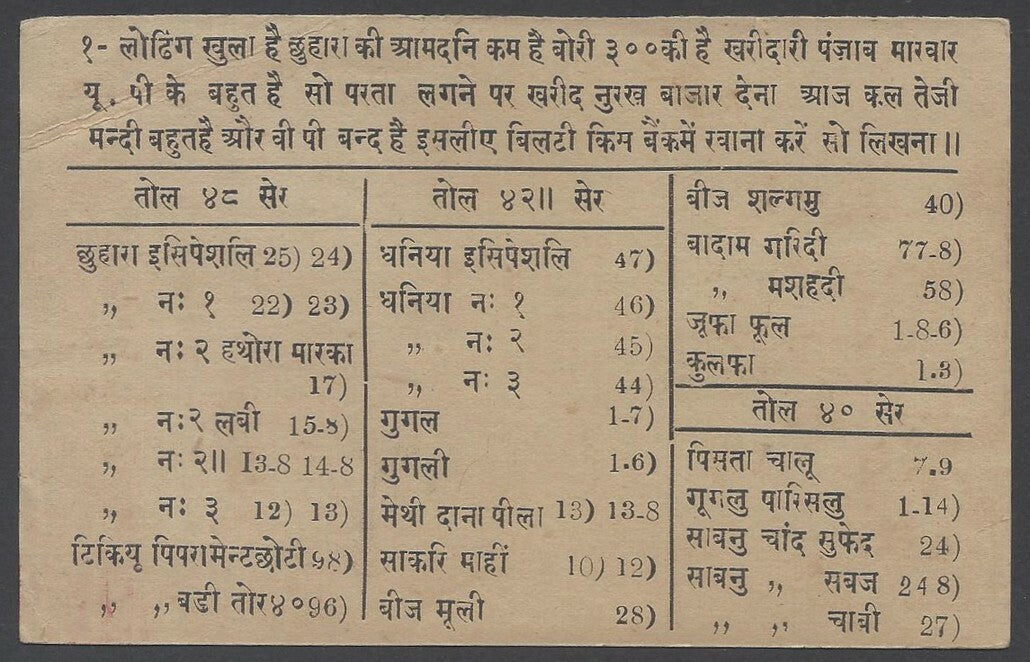 १- लोढिंग खुला है छुहारा की आमदनि कम है बोरी ३००की है खरीदारी पंजाब मारवार
यू. पी के बहुत है सो परता लगने पर खरीद नुरख बाजार देना आज कल तेजी
मन्दी बहुतहै और वी पी बन्द है इसलीए बिलटी किस बैंकमें रवाना करें सो लिखना॥
तोल ४८ सेर
छुहारा इसिपेशलि 25) 24)
,, नः १ 22) 23)
,, नः २ हथोरा पारका
17)
,, नः२ लबी 15-8)
,, नः २॥ 13-8 14-8
,, नः ३ 12) 13)
टिकियू पिपरामेन्टछोटी ५8)
,, ,, बडी तोर४० 96)
तोल ४२॥ सेर
धनिया इसिपेशलि 47)
धनिया नः १ 46)
,, नः २ 45)
,, नः ३ 44)
गुगल 1-7)
गुगली 1.6)
मेथी दाना पीला 13) 13-8
साकरि माहीं 10) 12)
बीज मूली 28)
बीज शल्गमु 40)
बादाम गरिदी 77-8)
,, मशहदी 58)
जूफा फूल 1-8-6)
कुलफा 1.3)
तोल ४० सेर
पिसता चालू 7.9
गूगलु पारिसलु 1-14)
साबनु चांद सुफेद 24)
साबनु ,, सबज 24 8)
,, ,, चाबी 27)